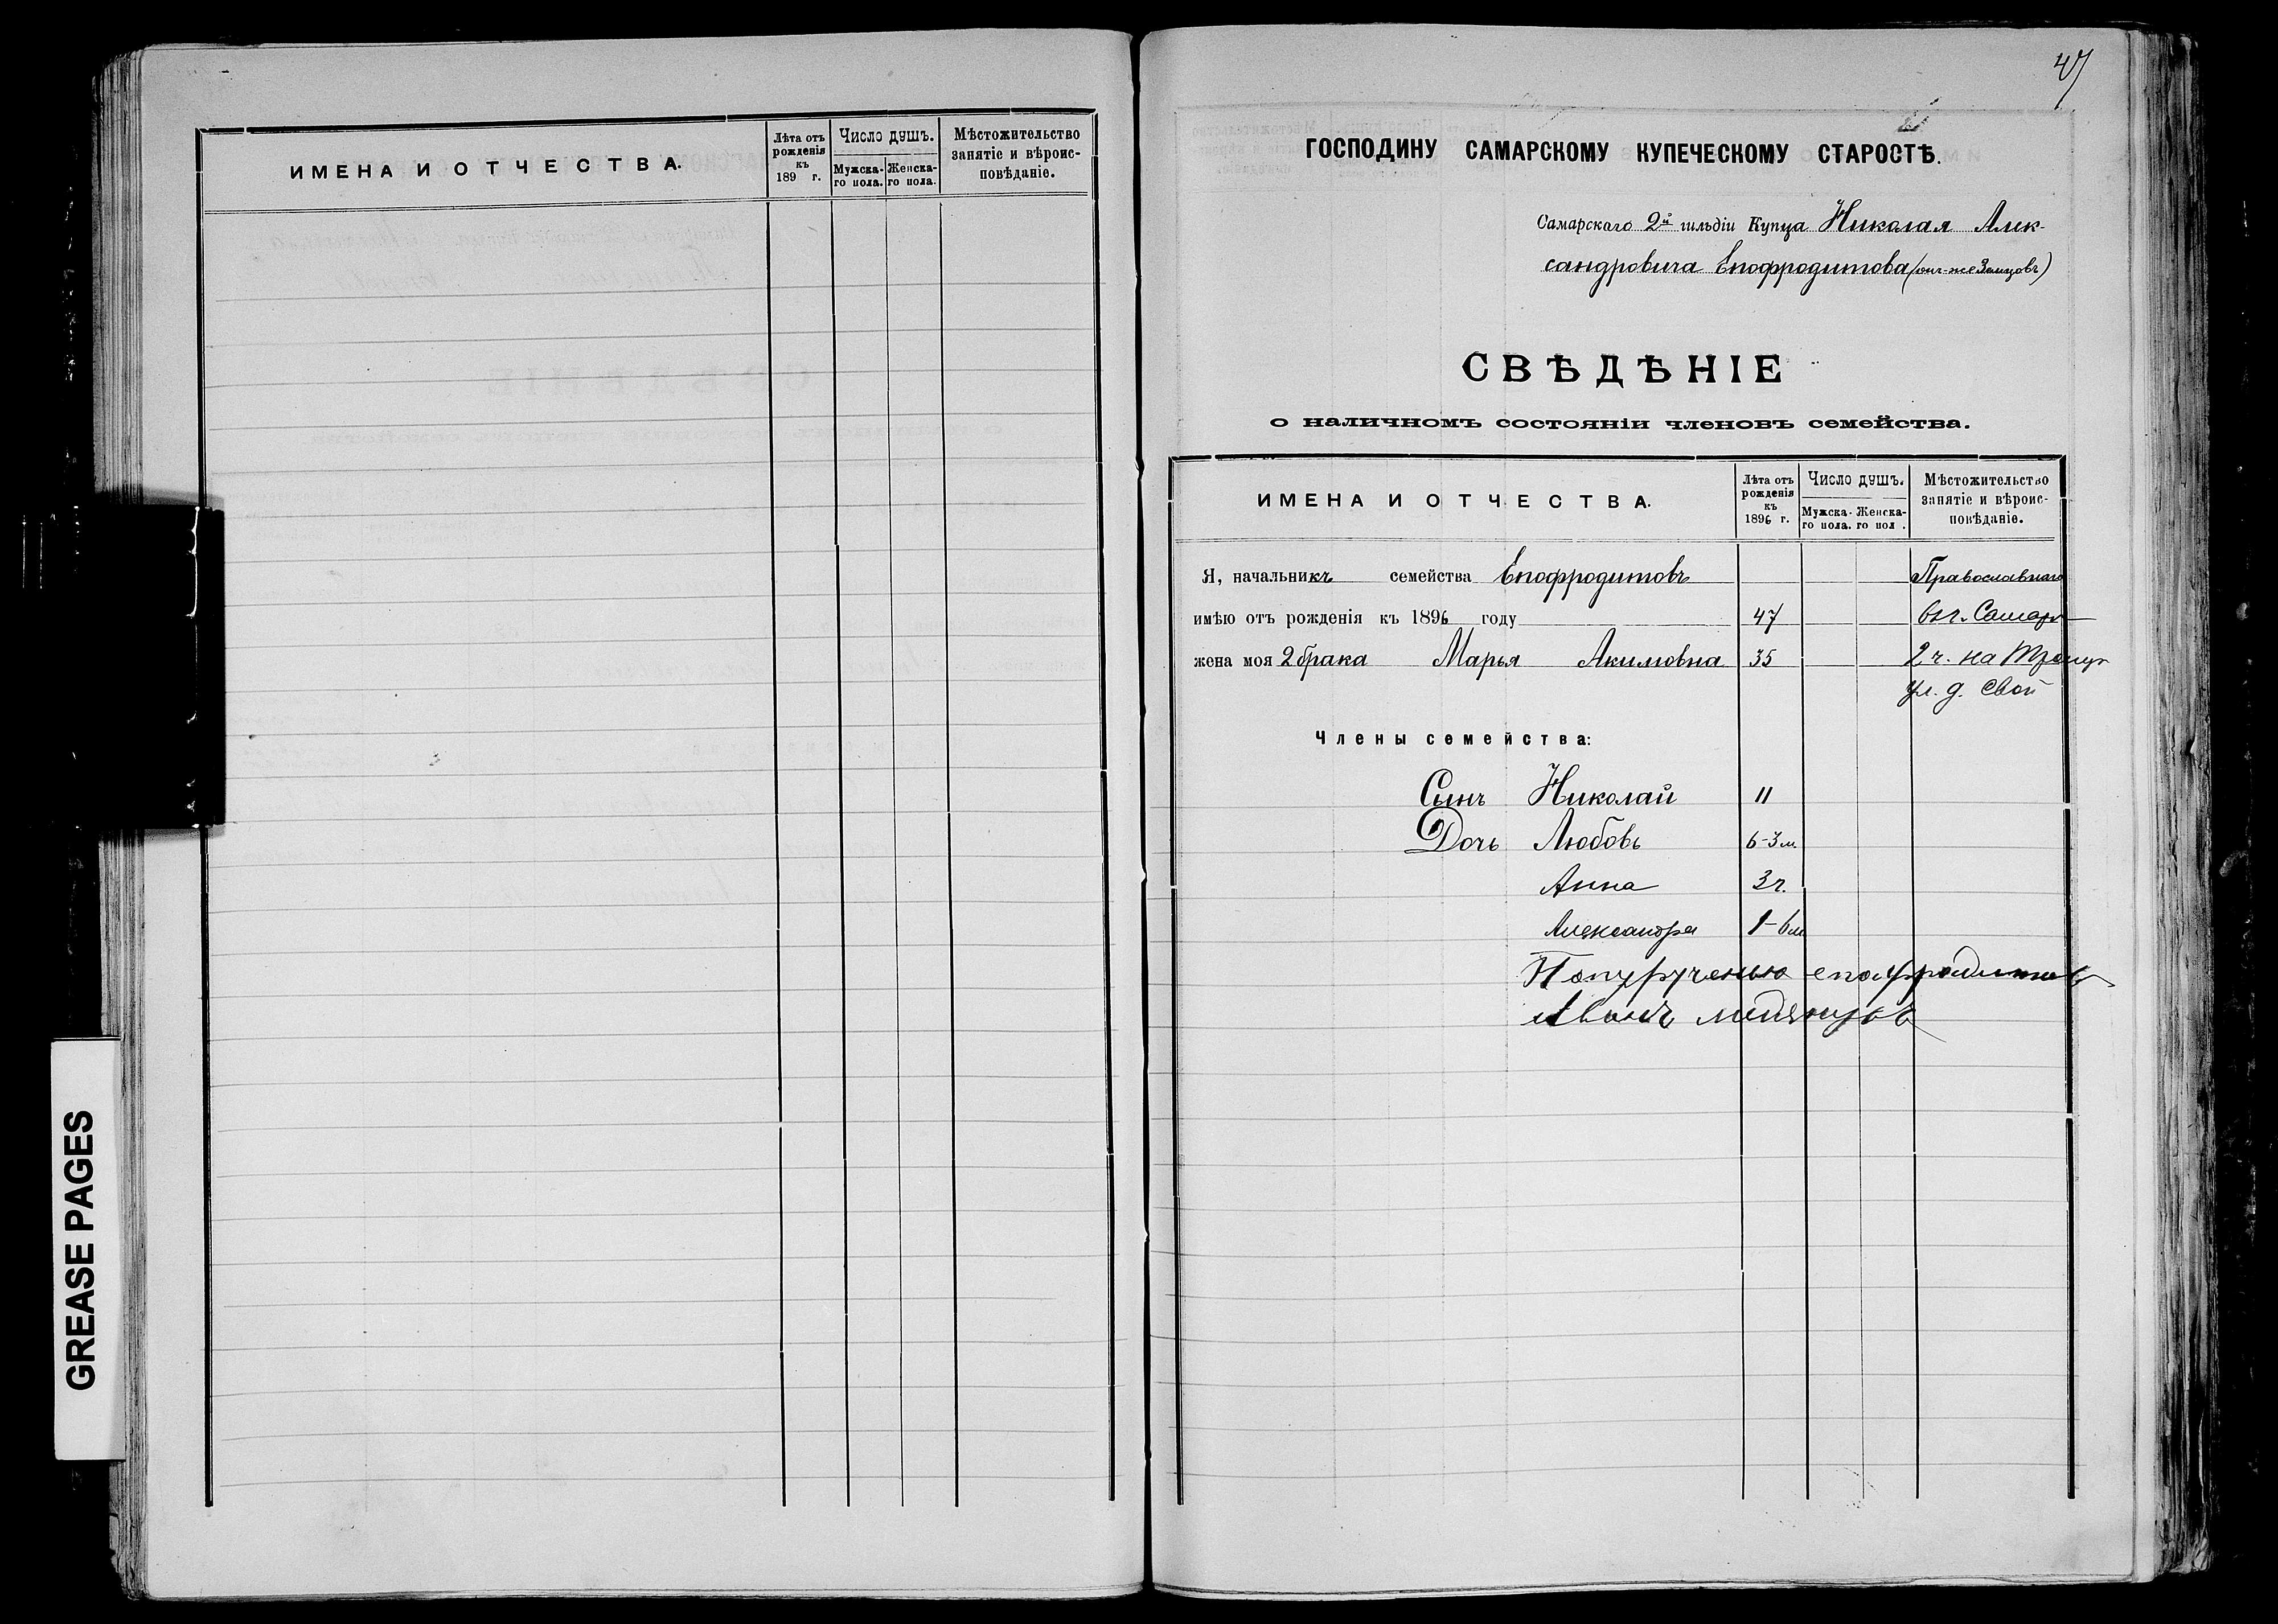 ИМЕНА И ОТЧЕСТВА.
Лѣта отъ рожденія къ 189 г.
Число душъ.
Мужска-го пола.
Женска-го пола.
Мѣстожительство занятіе и вѣроис-повѣданіе.
GREASE PAGES
47
ГОСПОДИНУ САМАРСКОМУ КУПЕЧЕСКОМУ СТАРОСТѢ.
Самарскаго 2й гильдіи Купца Николая Алек-
сандровича Епофродитова (онъ-же Земцовъ)
СВѢДѢНІЕ
о наличномъ состояніи членовъ семейства.
ИМЕНА И ОТЧЕСТВА.
Лѣта отъ рожденія къ 1896 г.
Число душъ.
Мужска-го пола.
Женска-го пол .
Мѣстожительство занятіе и вѣроис-повѣданіе.
Я, начальникъ семейства Епофродитовъ Православнаго
имѣю отъ рожденія къ 1896 году 47 въ г. Самарѣ
жена моя 2 брака Марья Акимовна 35 2 ч. на
ул. д. свой
Члены семейства:
Сынъ Николай 11
Дочь Любовь 6-3м.
Анна 3 г.
Александра 1-6м
епафродитов
Иванъ